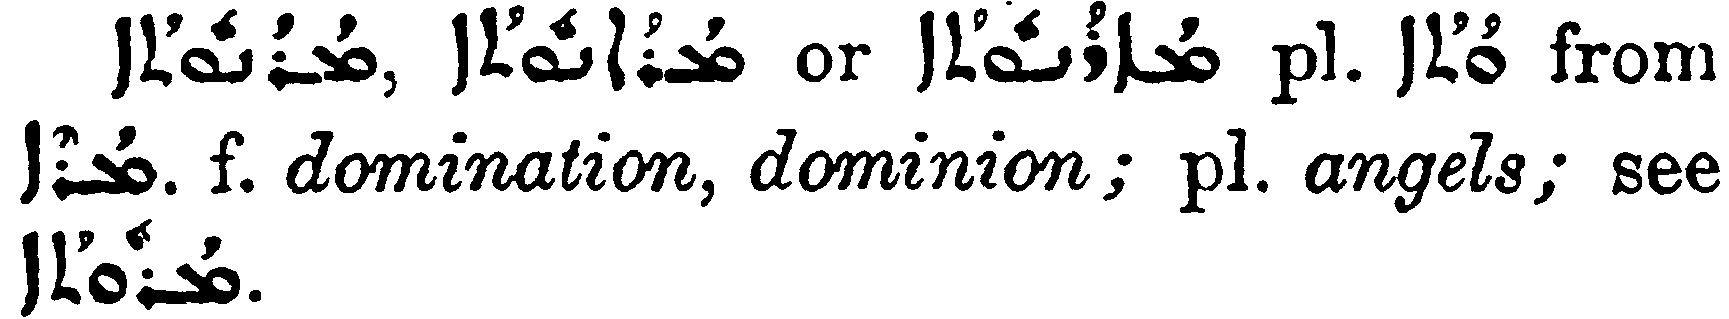 ܡܳܪܳܢܽܘܬܳܐ, ܡܳܪܳܐܢܽܘܬܳܐ or ܡܳܐܪܳܢܽܘܬܳܐ pl. ܘܳܬܳܐ from
ܡܳܪܶܐ. f. domination, dominion; pl. angels; see
ܡܳܪܽܘܬܳܐ.